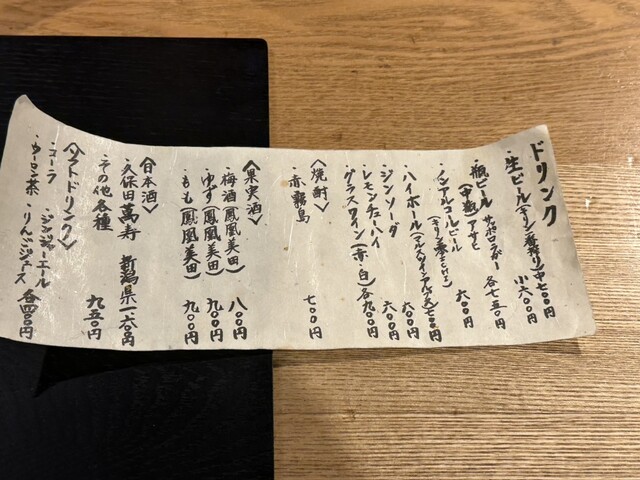 ドリンク
・生ビール(キリン一番搾り)中七〇〇円
小六〇〇円
・瓶ビール サッポロラガー
(中瓶) アサヒ 各七五〇円
・ノンアルコールビール 六〇〇円
(キリン零
・ハイボール 七〇〇円
・ジンソーダ 六〇〇円
・レモンチューハイ 六〇〇円
・グラスワイン(赤・白)各九〇〇円
〈焼酎〉
・赤霧島 七〇〇円
〈果実酒〉
・梅酒(鳳凰美田) 八〇〇円
・ゆず(鳳凰美田) 九〇〇円
・もも(鳳凰美田) 九〇〇円
〈日本酒〉
・久保田萬寿 新潟県
・その他各種 九五〇円
〈ソフトドリンク〉
・コーラ ・ジンジャーエール
・ウーロン茶 ・りんごジュース 各四〇〇円